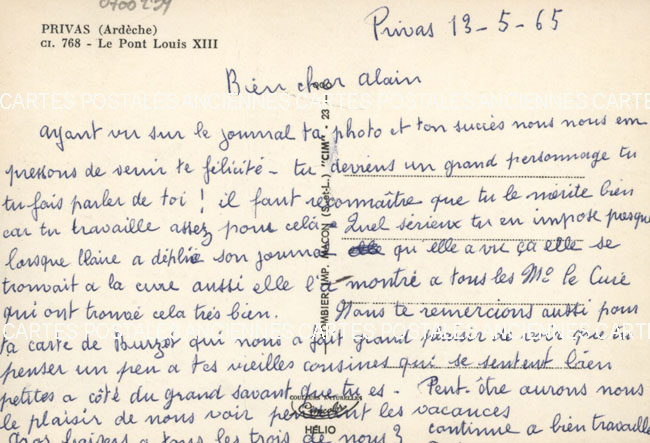 0700239
PRIVAS (Ardèche)
CI. 768 - Le Pont Louis XIII
Privas 13-5-65
Bien cher Alain
CARTES POSTALES ANCIENNES CARTES POSTALES ANCIENNES CARTES
ayant vu sur le journal ta photo et ton succès nous nous em
pressons de venir te félicité - tu deviens un grand personnage tu
tu fais parler de toi ! il faut reconnaître que tu le mérite bien
car tu travaille assez pour celà - Quel sérieux tu en impose presque
lorsque Claire a déplié son journal qu elle a vu ça elle se
trouvait a la cure aussi elle l'a montré a tous les Mr le Curé
qui ont trouvé cela très bien. Nous te remercions aussi pour
ta carte de Burzet qui nous a fait grand plaisir de voir que
penser un peu a tes vieilles cousines qui se sentent bien
petites a côté du grand savant que tu es - Peut-être aurons nous
le plaisir de nous voir pendant les vacances
continue a bien travaille
baisers a tous les trois de nous 3
COMBIER IMP. MACON (S.-et-L.) "CIM" - 23
COULEURS NATURELLES
HÉLIO